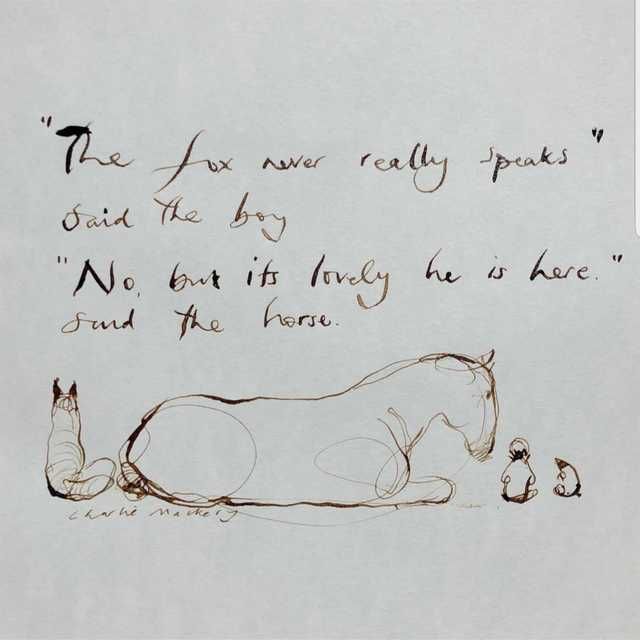 "The fox never really speaks"
said the boy
"No, but its lovely he is here."
said the horse.
Charlie Mackesy